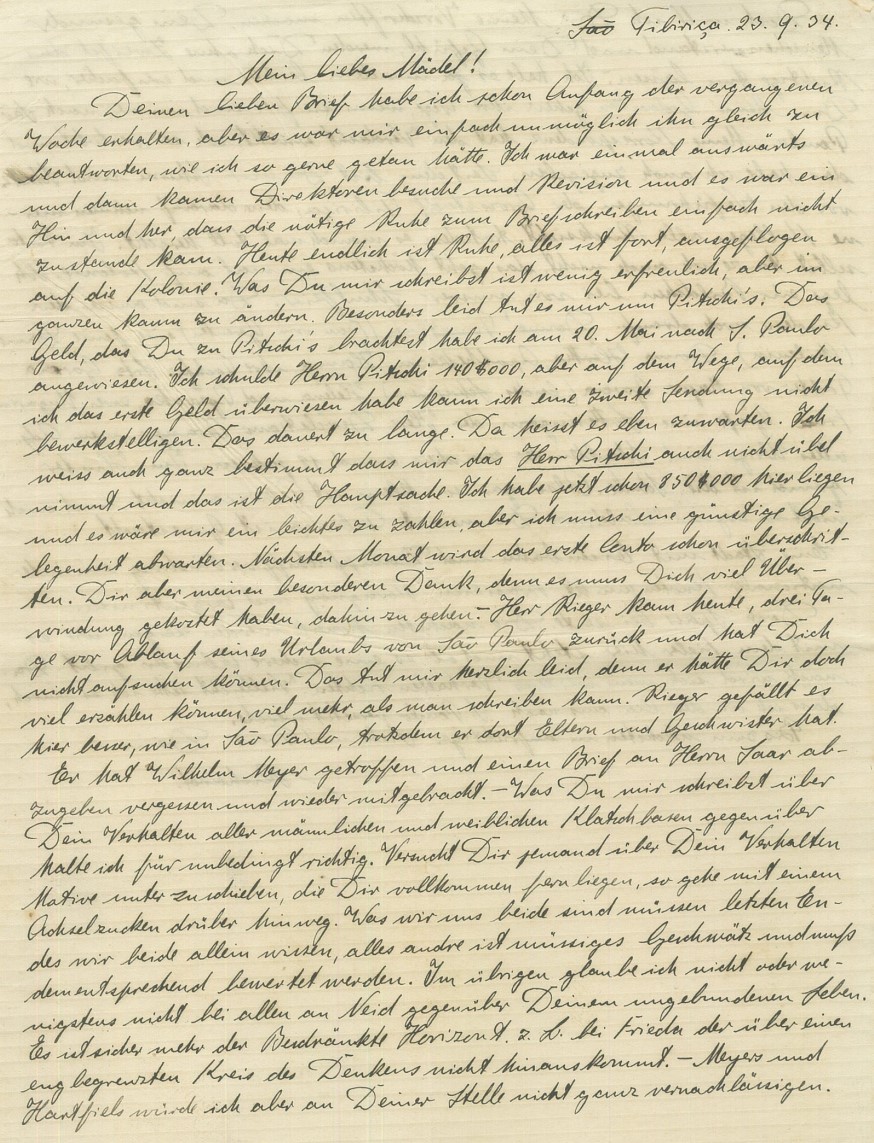 São Tibiriça. 23. 9. 34.
Mein liebes Mädel!
Deinen lieben Brief habe ich schon Anfang der vergangenen
Woche erhalten, aber es war mir einfach unmöglich ihn gleich zu
beantworten, wie ich so gerne getan hätte. Ich war einmal auswärts
und dann kamen Direktorenbesuche und Revision und es war ein
Hin und her, dass die nötige Ruhe zum Briefschreiben einfach nicht
zustande kam. Heute endlich ist Ruhe, alles ist fort, ausgeflogen
auf die Kolonie. Was Du mir schreibst ist wenig erfreulich, aber im
ganzen kaum zu ändern. Besonders leid tut es mir um Pitschi's. Das
Geld, das Du zu Pitschi's brachtest habe ich am 20. Mai nach S. Paulo
angewiesen. Ich schulde Herrn Pitschi 140$000, aber auf dem Wege, auf dem
ich das erste Geld überwiesen habe kann ich eine zweite Sendung nicht
bewerkstelligen. Das dauert zu lange. Da heisst es eben zuwarten. Ich
weiss auch ganz bestimmt dass mir das Herr Pitschi auch nicht übel
nimmt und das ist die Hauptsache. Ich habe jetzt schon 850$000 hier liegen
und es wäre mir ein leichtes zu zahlen, aber ich muss eine günstige Ge-
legenheit abwarten. Nächsten Monat wird das erste Conto schon überschrit-
ten. Dir aber meinen besonderen Dank, denn es muss Dich viel Über-
windung gekostet haben, dahin zu gehen. - Herr Rieger kam heute, drei Ta-
ge vor Ablauf seines Urlaubs von São Paulo zurück und hat Dich
nicht aufsuchen können. Das tut mir herzlich leid, denn er hätte Dir doch
viel erzählen können, viel mehr, als man schreiben kann. Rieger gefällt es
hier besser, wie in São Paulo, trotzdem er dort Eltern und Geschwister hat.
Er hat Wilhelm Meyer getroffen und einen Brief an Herrn Saar ab-
zugeben vergessen und wieder mitgebracht. - Was Du mir schreibst über
Dein Verhalten aller männlichen und weiblichen Klatschbasen gegenüber
halte ich für unbedingt richtig. Versucht Dir jemand über Dein Verhalten
Motive unter zu schieben, die Dir vollkommen fern liegen, so gehe mit einem
Achselzucken drüber hinweg. Was wir uns beide sind müssen letzten En-
des wir beide allein wissen, alles andre ist müssiges Geschwätz und muss
dementsprechend bewertet werden. Im übrigen glaube ich nicht oder we-
nigstens nicht bei allen an Neid gegenüber Deinem ungebundenen Leben.
Es ist sicher mehr der Beschränkte Horizont. z. B. bei Frieda der über einen
eng begrenzten Kreis des Denkens nicht hinauskommt. - Meyers und
Hartfiels würde ich aber an Deiner Stelle nicht ganz vernachlässigen.